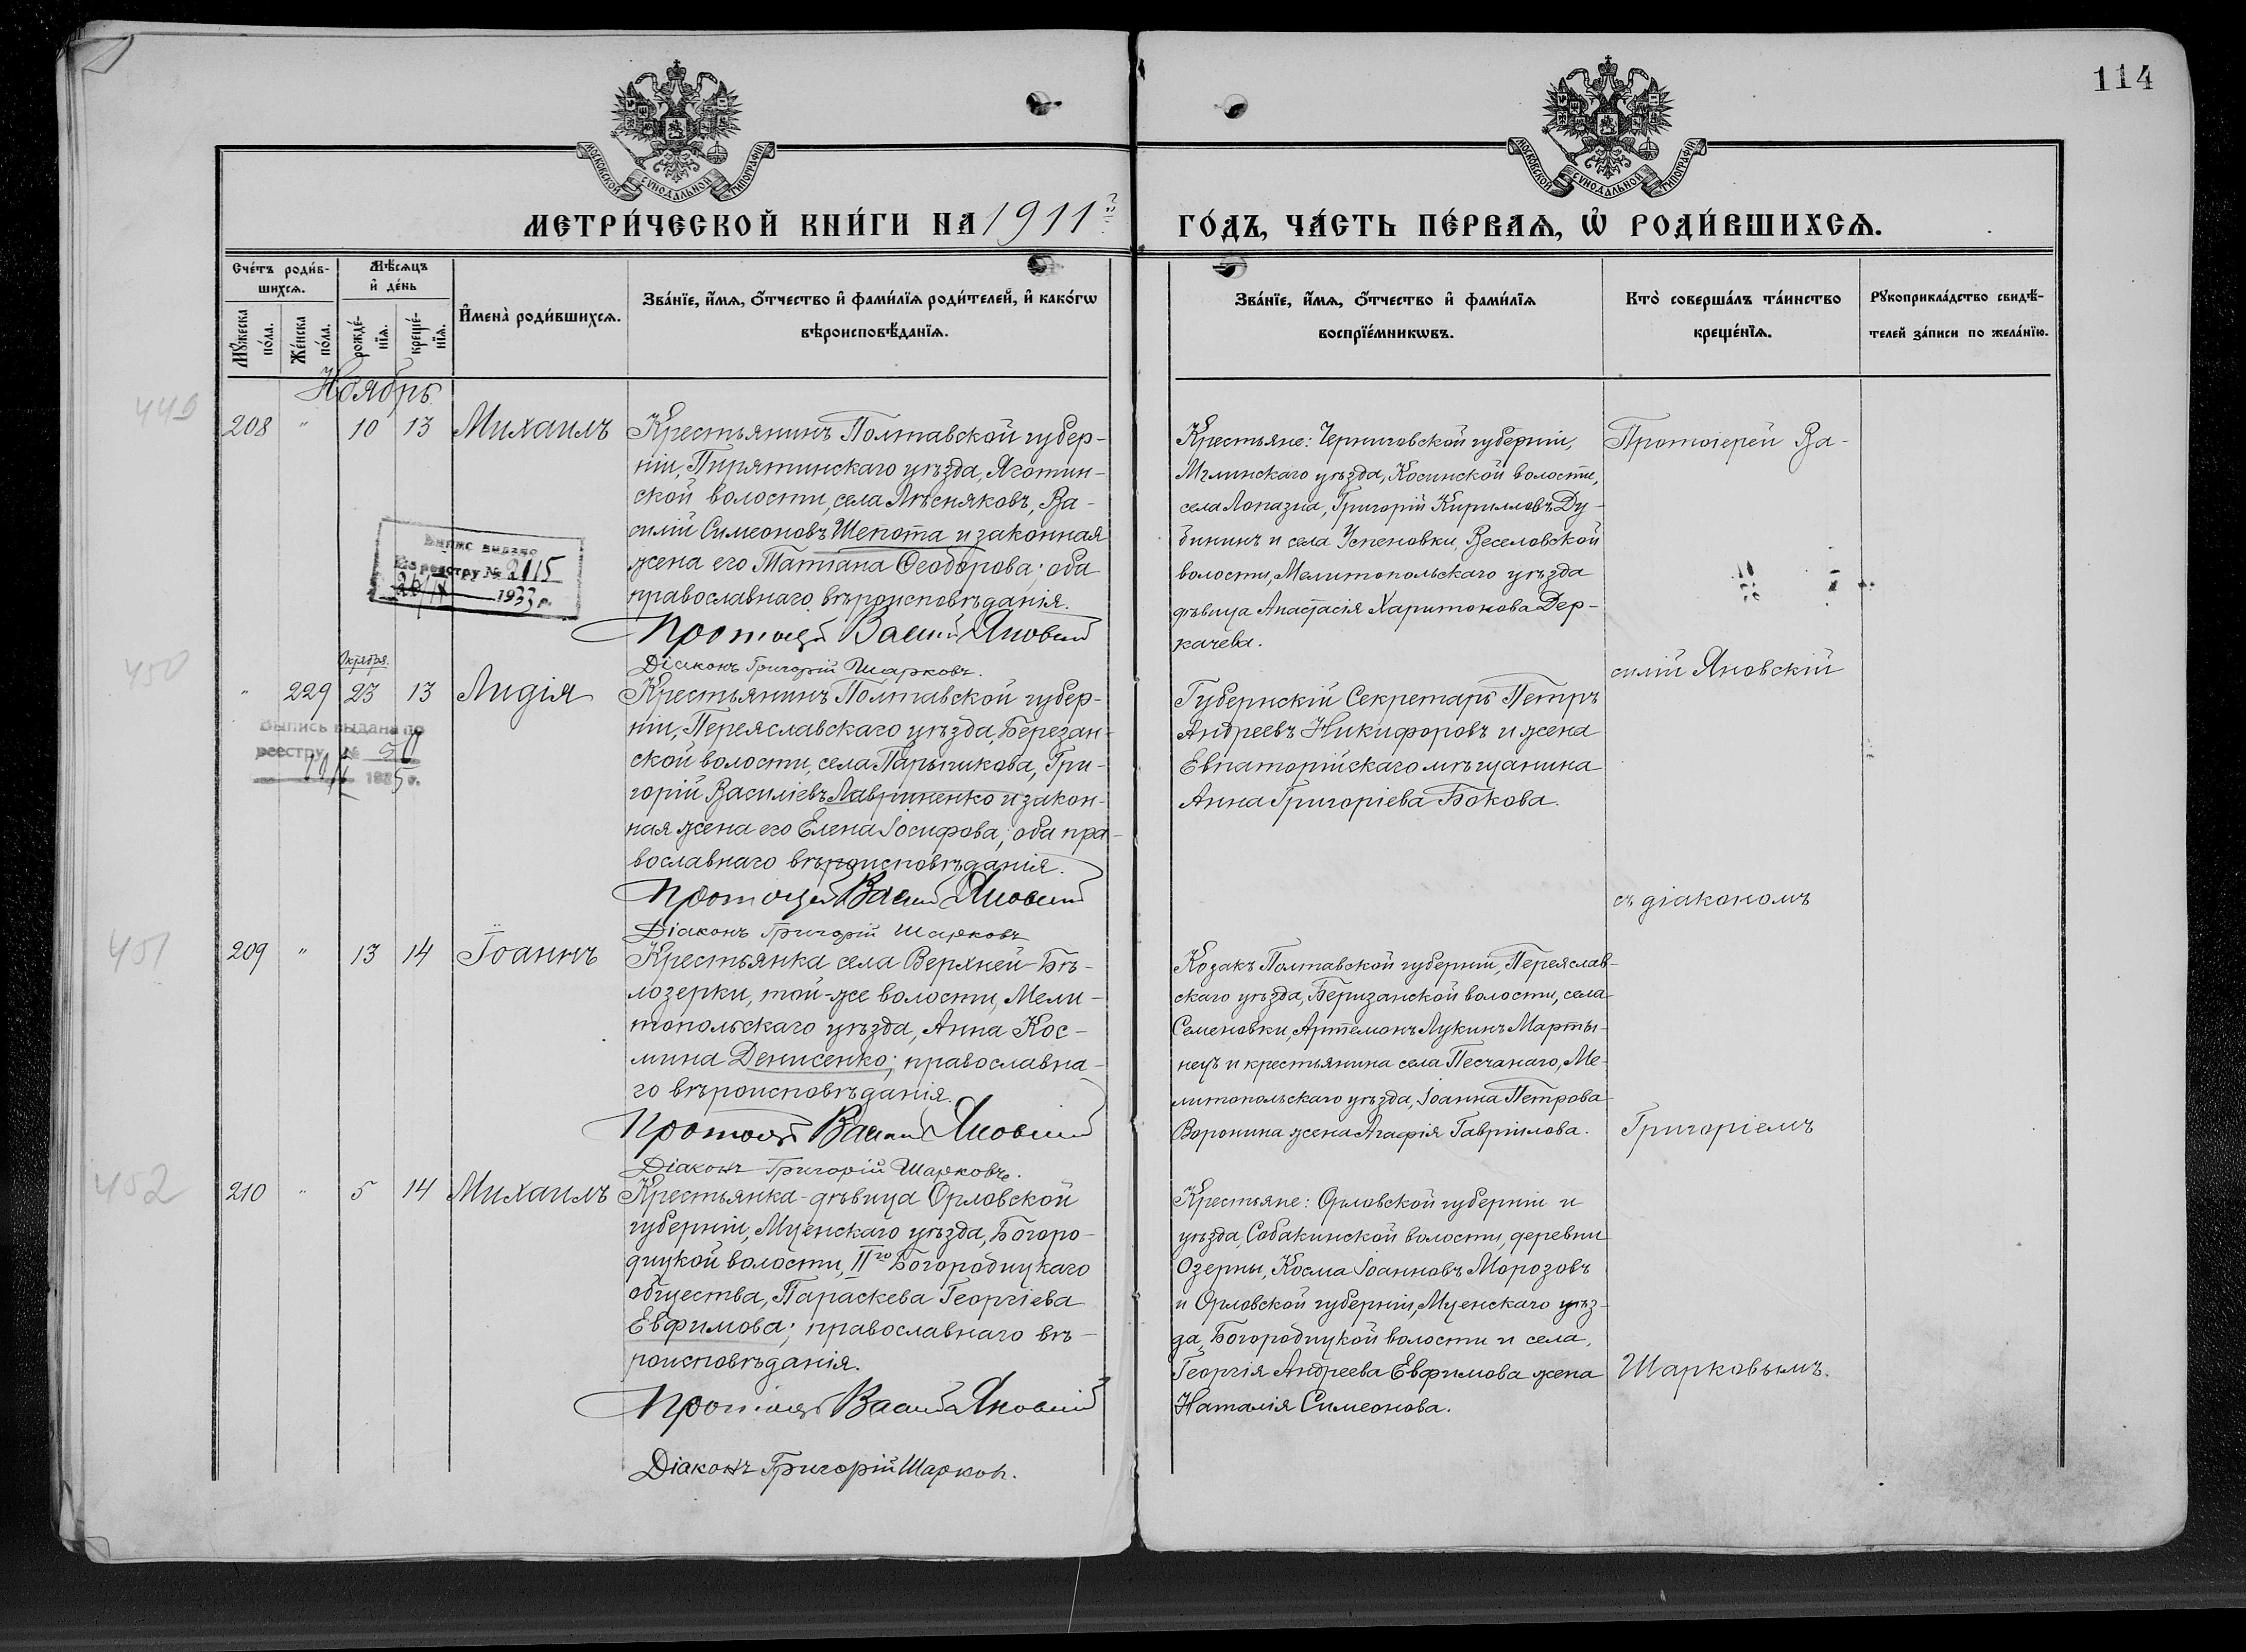 114
МОСКОВСКОЙ СѴНОДАЛЬНОЙ ТИПОГРАФІИ
МОСКОВСКОЙ СѴНОДАЛЬНОЙ ТИПОГРАФІИ
МЕТРИ́ЧЕСКОЙ КНИ́ГИ НА 1911й
ГО́ДЪ, ЧА́СТЬ ПЕ́РВАѦ, Ѡ҆ РОДИ́ВШИХСѦ.
Сче́тъ роди́в-
шихсѧ.
Мꙋ́жеска по́ла.
Же́нска по́ла.
Мѣ́сѧцъ
и҆ де́нь
рожде́-
нїѧ.
креще́-
нїѧ.
И҆мена̀ роди́вшихсѧ.
Зва́нїе, и҆́мѧ, ѻ҆́тчество и҆ фами́лїѧ роди́телей, и҆ како́гѡ
вѣроисповѣ́данїѧ.
Зва́нїе, и҆́мѧ, ѻ҆́тчество и҆ фами́лїѧ
воспрїе́мникѡвъ.
Кто̀ соверша́лъ та́инство
креще́нїѧ.
Рꙋкоприкла́дство свидѣ́-
телей за́писи по жела́нїю.
Ноябрь.
449
208 " 10 13 Михаилъ
Крестьянинъ Полтавской губер-
ніи, Пирятинскаго уѣзда, Яготин-
ской волости, села Лѣсняковъ, Ва-
силій Симеоновъ Шепота и законная
жена его Татіана Ѳеодорова; оба
православнаго вѣроисповѣданія.
Протоіерей Василій Яновскій
Діаконъ Григорій Шарковъ.
Випис видано
По реєстру № 2115
1933 р.
Крестьяне: Черниговской губерніи,
Мглинскаго уѣзда, Косинской волости,
села Лопазна, Григорій Кирилловъ Ду-
бининъ и села Успеновки, Веселовской
волости, Мелитопольскаго уѣзда
дѣвица Анастасія Харитонова Дер-
качева.
Протоіерей Ва-
силій Яновскій
съ діакономъ
Григоріемъ
Шарковымъ.
450
Октября
" 229 23 13 Лидія
Крестьянинъ Полтавской губер-
ніи, Переяславскаго уѣзда, Березан-
ской волости, села Парышкова, Гри-
горій Василіевъ Лавриненко и закон-
ная жена его Елена Іосифова; оба пра-
вославнаго вѣроисповѣданія.
Протоіерей Василій Яновскій
Діаконъ Григорій Шарковъ
Выпись выдана по
реестру № 50
Губернскій Секретарь Петръ
Андреевъ Никифоровъ и жена
Евпаторійскаго мѣщанина
Анна Григоріева Бокова.
451
209 " 13 14 Іоаннъ
Крестьянка села Верхней-Бѣ-
лозерки, той-же волости, Мели-
топольскаго уѣзда, Анна Кос-
мина Денисенко; православна-
го вѣроисповѣданія.
Протоіерей Василій Яновскій
Діаконъ Григорій Шарковъ.
Козакъ Полтавской губерніи, Переяслав-
скаго уѣзда, Беризанской волости, села
Семеновки, Артемонъ Лукинъ Марты-
нецъ и крестьянина села Песчанаго, Ме-
литопольскаго уѣзда, Іоанна Петрова
Воронина жена Агафія Гавріилова.
452
210 " 5 14 Михаилъ
Крестьянка-дѣвица Орловской
губерніи, Мценскаго уѣзда, Богоро-
дицкой волости, IIго Богородицкаго
общества, Параскева Георгіева
Евфимова; православнаго вѣ-
роисповѣданія.
Протоіерей Василій Яновскій
Діаконъ Григорій Шарковъ.
Крестьяне: Орловской губерніи и
уѣзда, Собакинской волости, деревни
Озерны, Косма Іоанновъ Морозовъ
и Орловской губерніи, Мценскаго уѣз-
да, Богородицкой волости и села,
Георгія Андреева Евфимова жена
Наталія Симеонова.